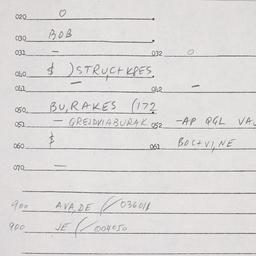 020 O
030 BOB
031 — 032 O
040 $ )STRUCTKPES.
041 — 042 —
050 BU,RAKES (172
051 — GREIDVIABURAK 052 -AP QGL VAL
060 $ 061 BOC+VI,NE
070 —
900 AVA,DE (/036018
900 JE (/004050